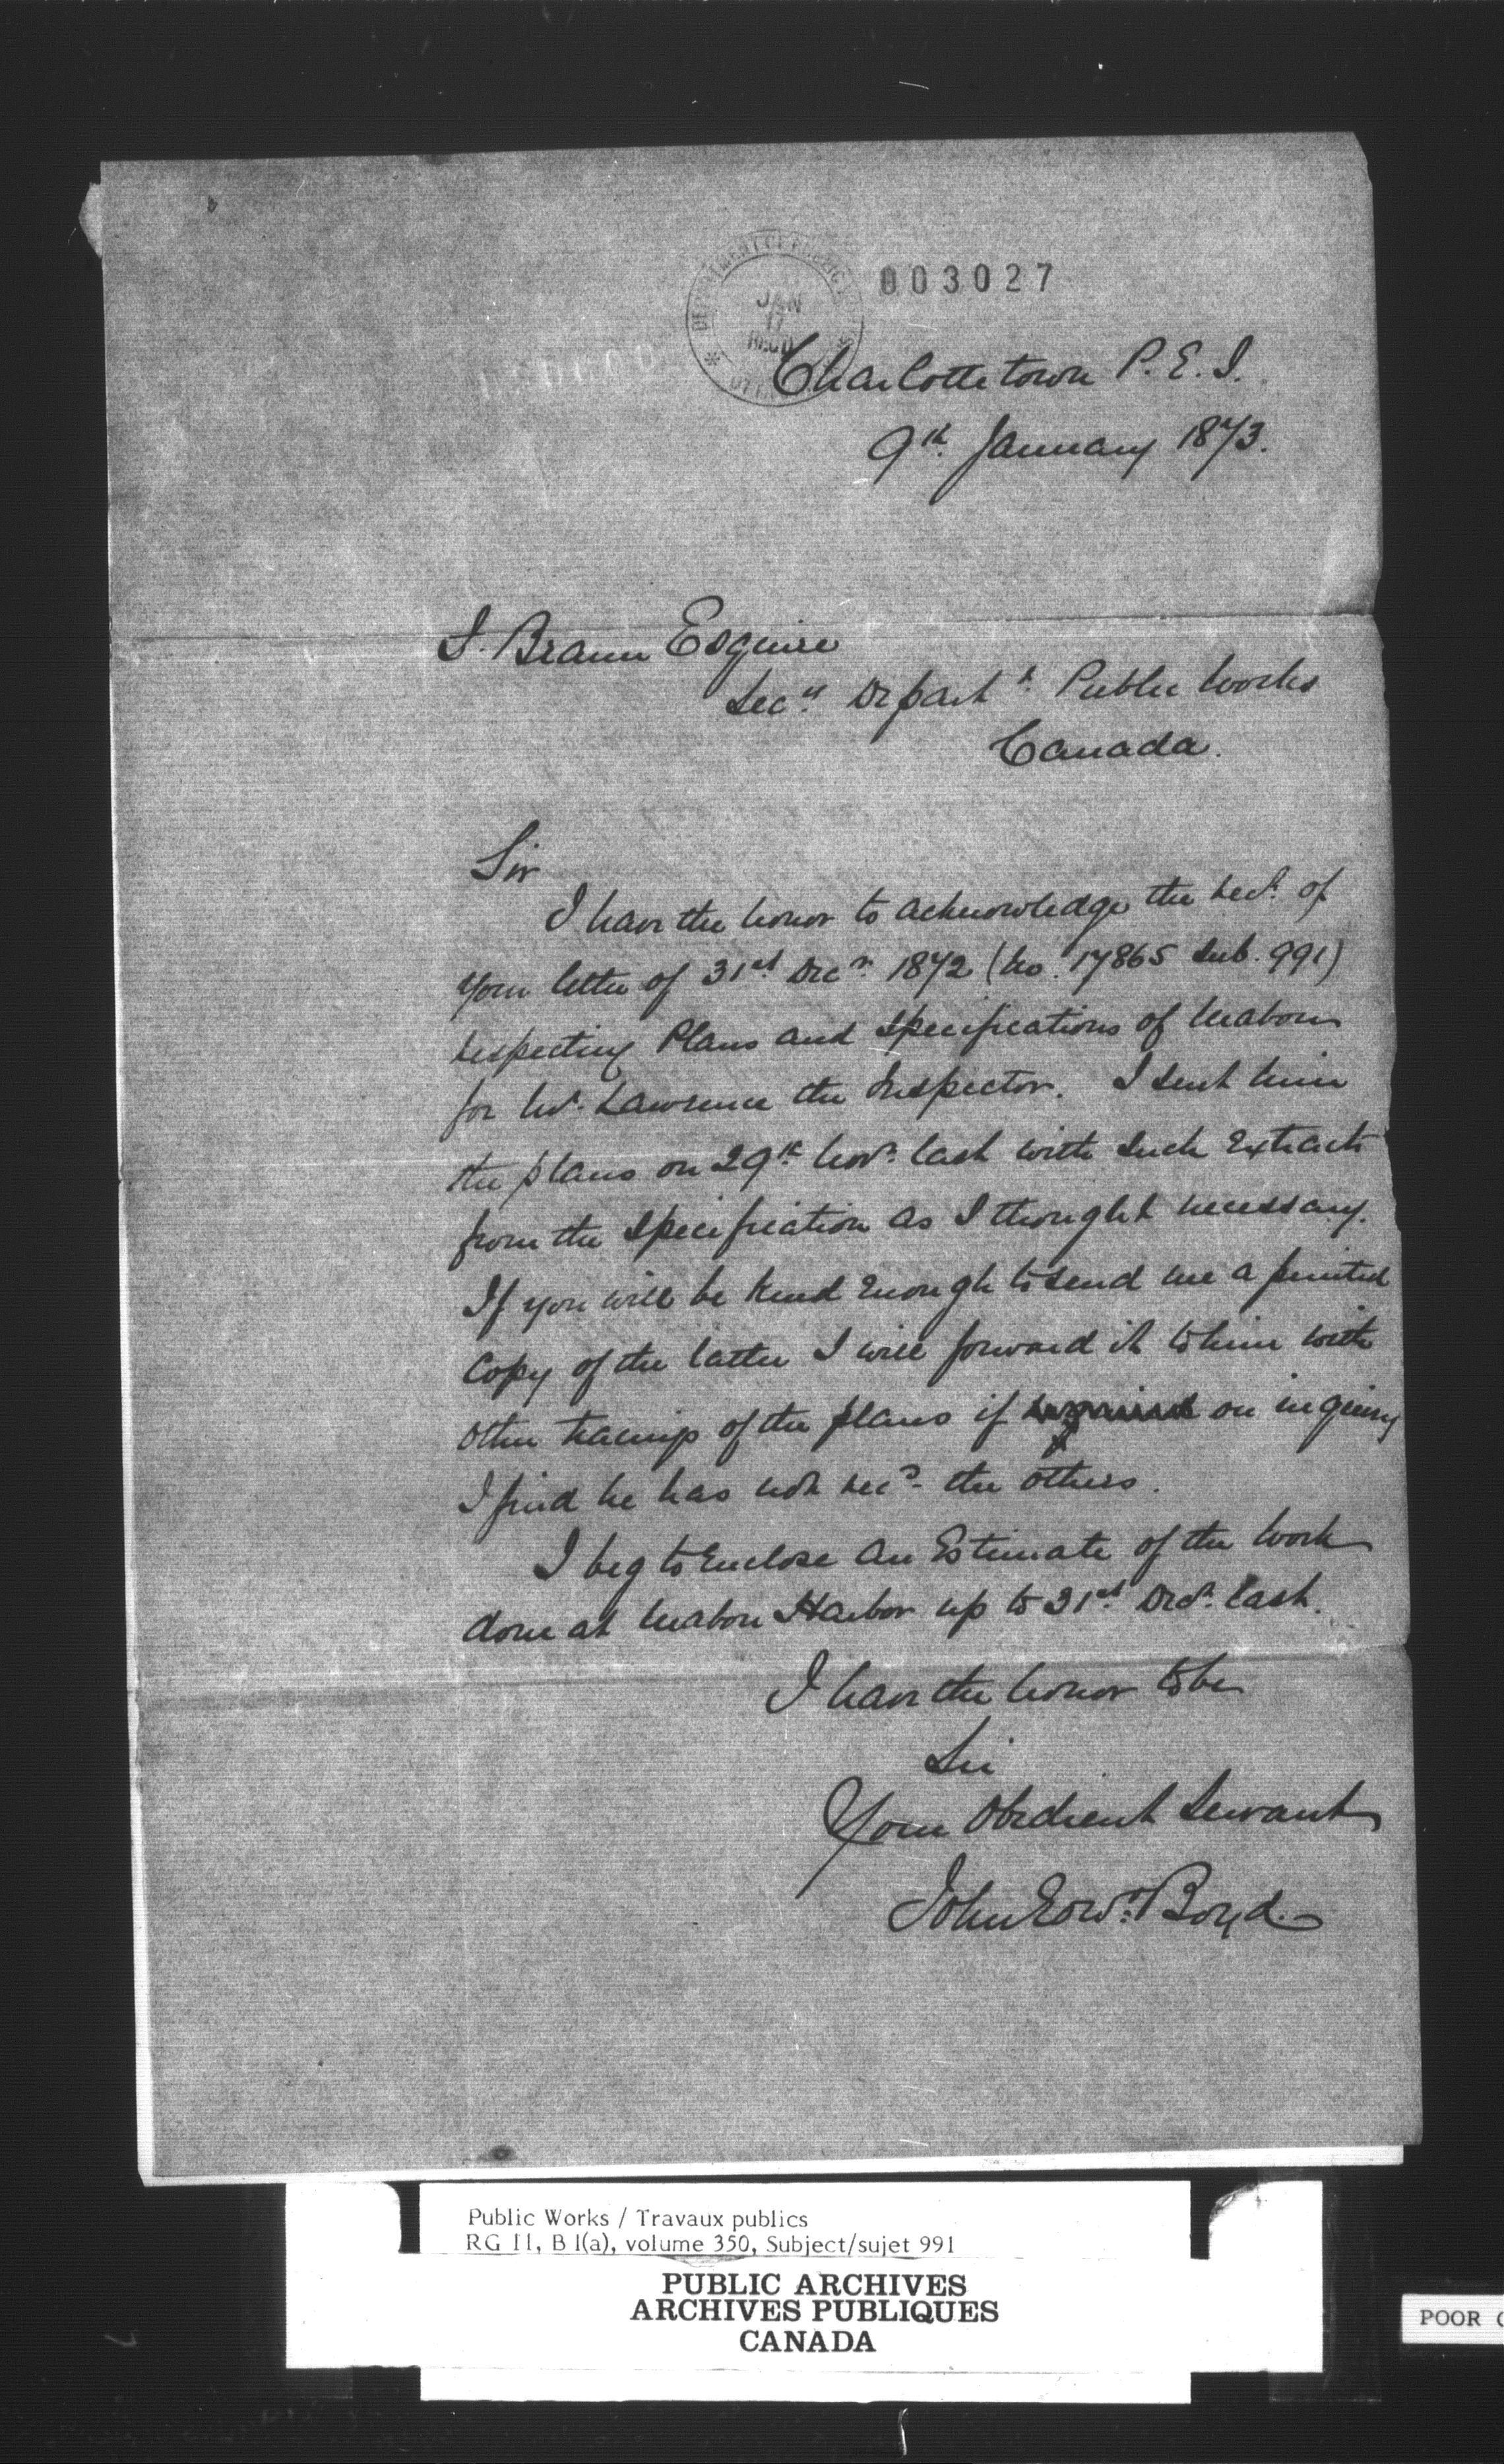 DEPARTMENT OF PUBLIC
JAN
17
REC'D
003027
Charlottetown P.E.I.
9th January 1873.
F. Braun Esquire
Secy Depart't Public Works
Canada.
Sir
I have the honor to acknowledge the rect. of
your letter of 31st Decr 1872 (No. 17865 Sub. 991)
respecting Plans and Specifications of Mabou
for Mr. Lawrence the Inspector. I sent him
the plans on 29th Novr. last with such Extracts
from the Specification as I thought necessary.
If you will be kind enough to send me a printed
Copy of the latter I will forward it to him with
other tracings of the plans if required on inquiry
I find he has not recd. the others.
I beg to Enclose an Estimate of the Work
done at Mabou Harbor up to 31st Decr. last.
I have the honor to be
Sir
Your Obedient Servant
John Edwd. Boyd.
Public Works / Travaux publics
RG 11, B 1(a), volume 350, Subject/sujet 991
PUBLIC ARCHIVES
ARCHIVES PUBLIQUES
CANADA
POOR